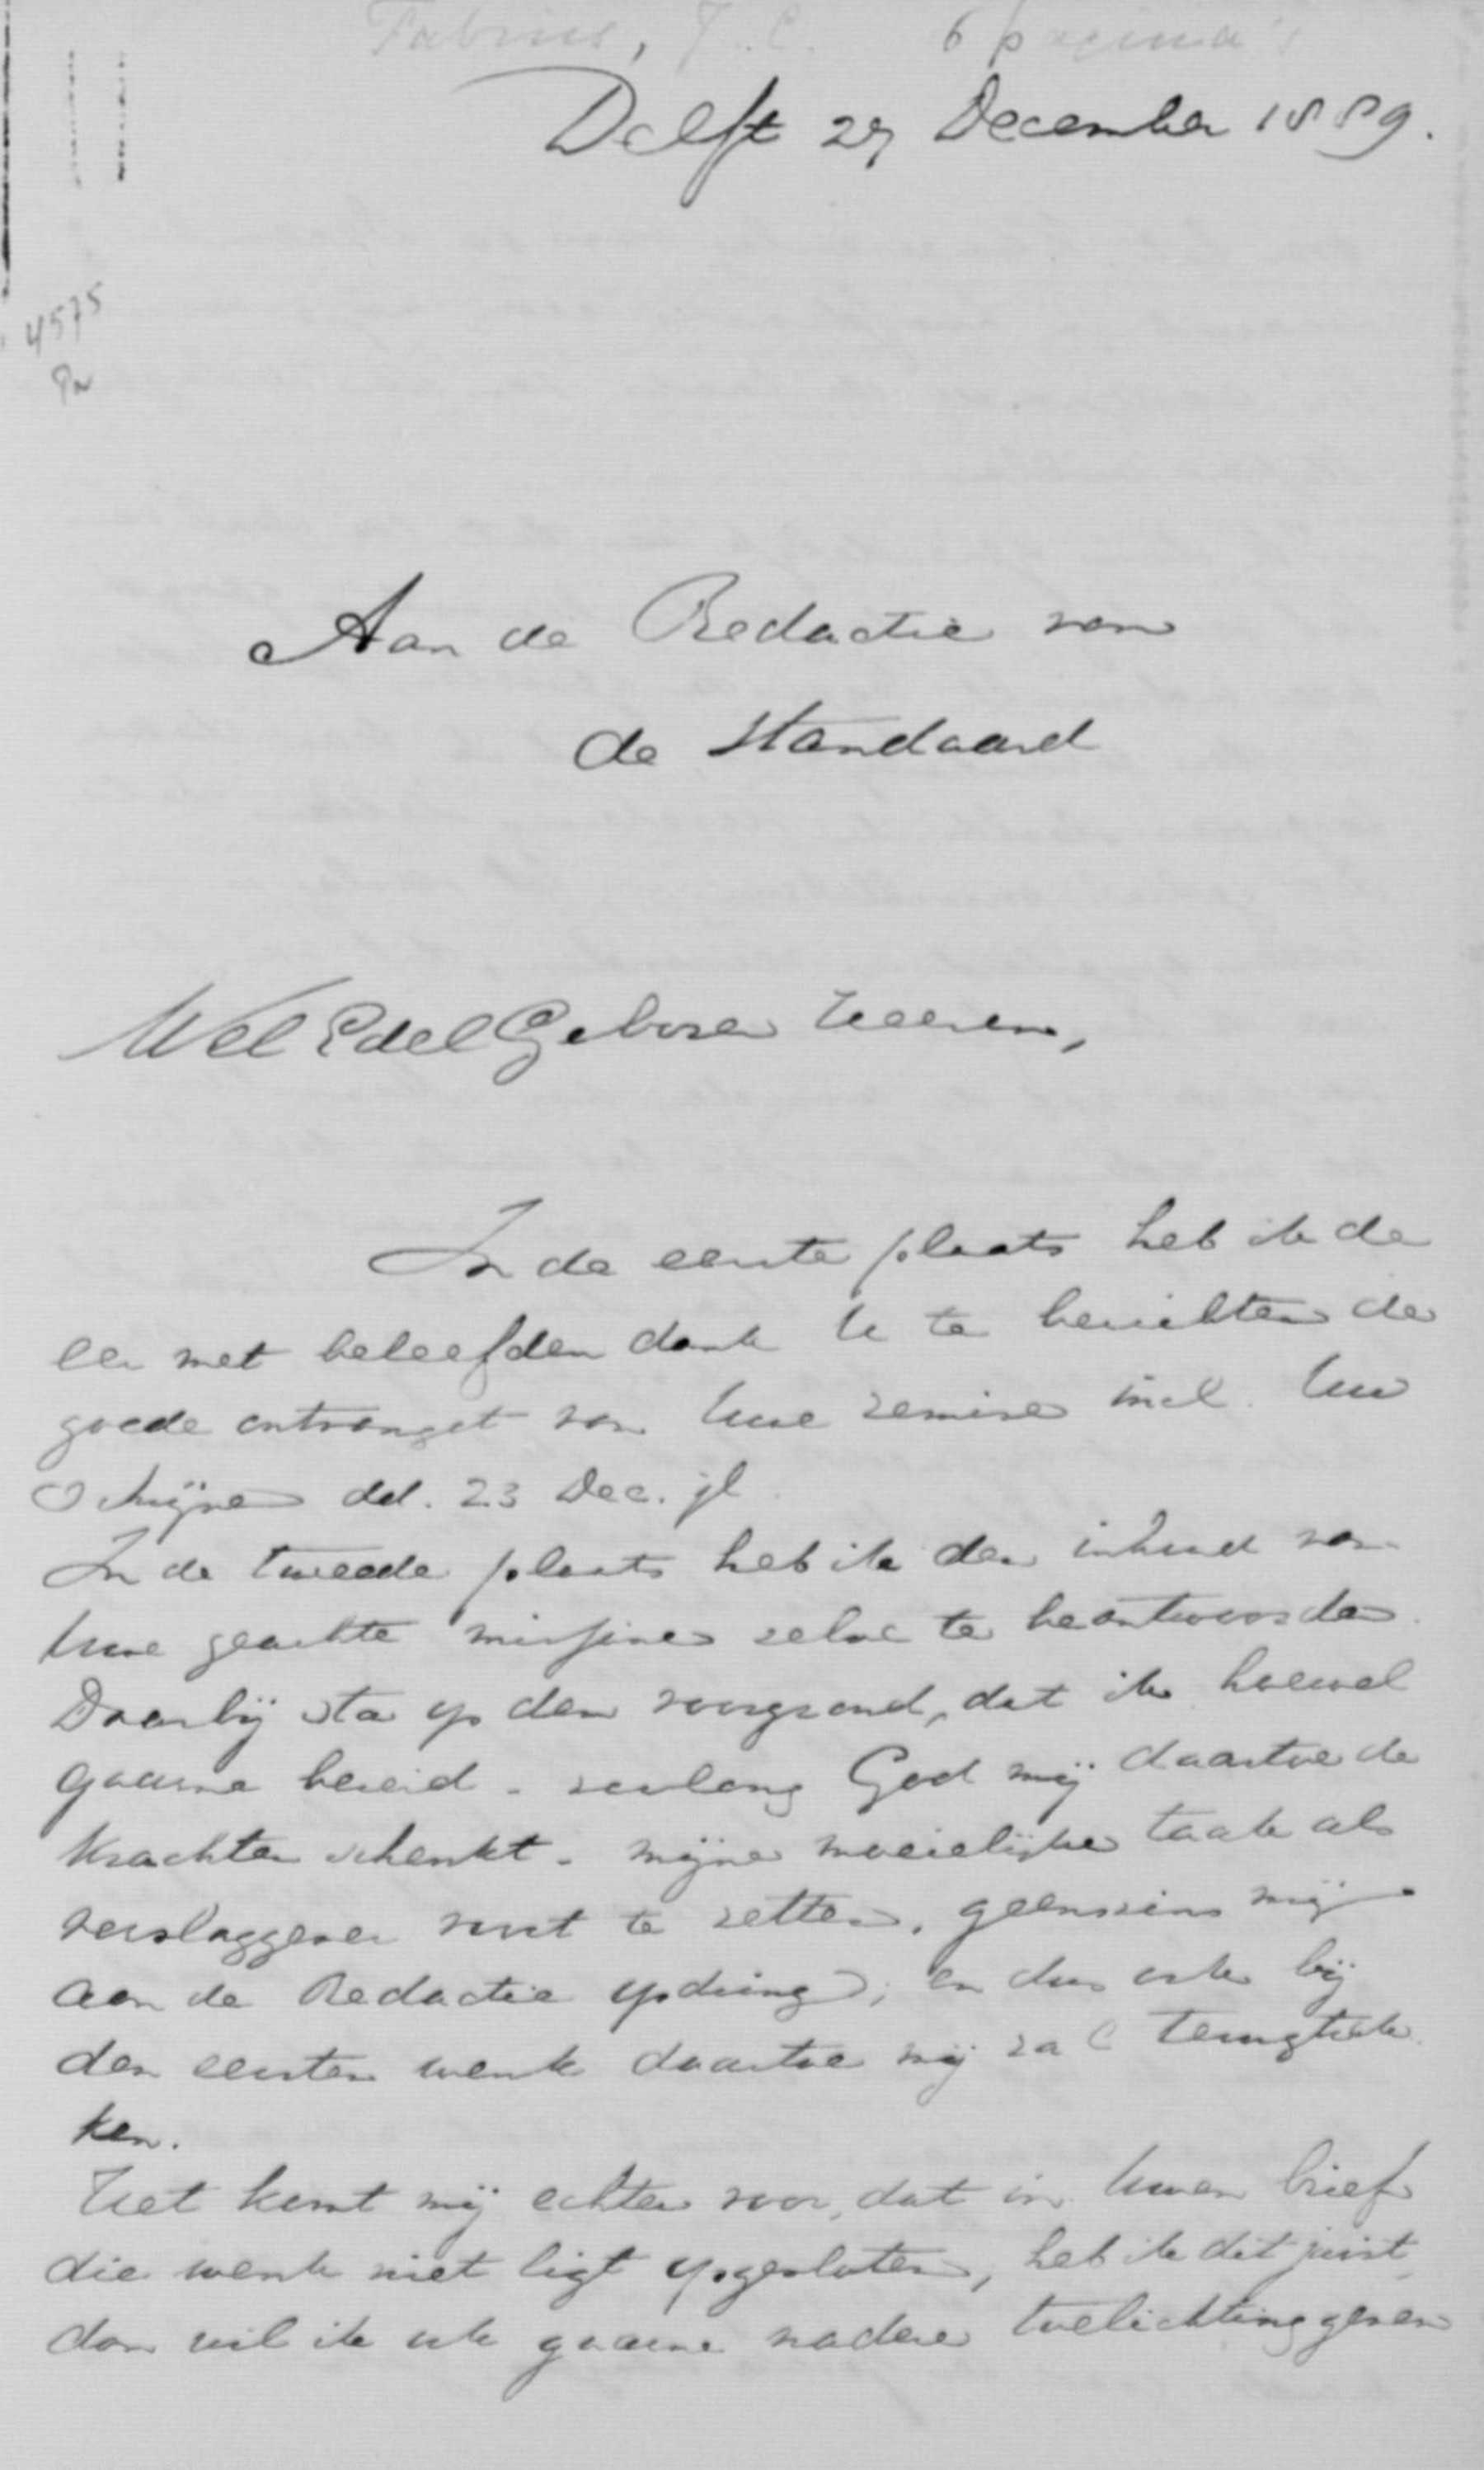 Fabius, J. C. 6 pagina's
Delft 27 December 1889.
4575
Aan de Redactie van
de Standaard
WelEdelGeboren Heeren,
In de eerste plaats heb ik de
eer met beleefden dank U te berichten de
goede ontvangst van Uwe remise incl. Uw
schrijven dd. 23 Dec. jl.
In de tweede plaats heb ik den inhoud van
Uwe geachte missive zelve te beantwoorden.
Daarbij sta op den voorgrond, dat ik hoewel
gaarne bereid - zoolang God mij daartoe de
krachten schenkt - mijne moeielijke taak als
verslaggever voort te zetten, geenszins mij
aan de Redactie opdring; en dus ook bij
den eersten wenk daartoe mij zal terugtrek
ken.
Het komt mij echter voor, dat in Uwen brief
die wenk niet ligt opgesloten, heb ik dit juist,
dan wil ik ook gaarne nadere toelichting geven